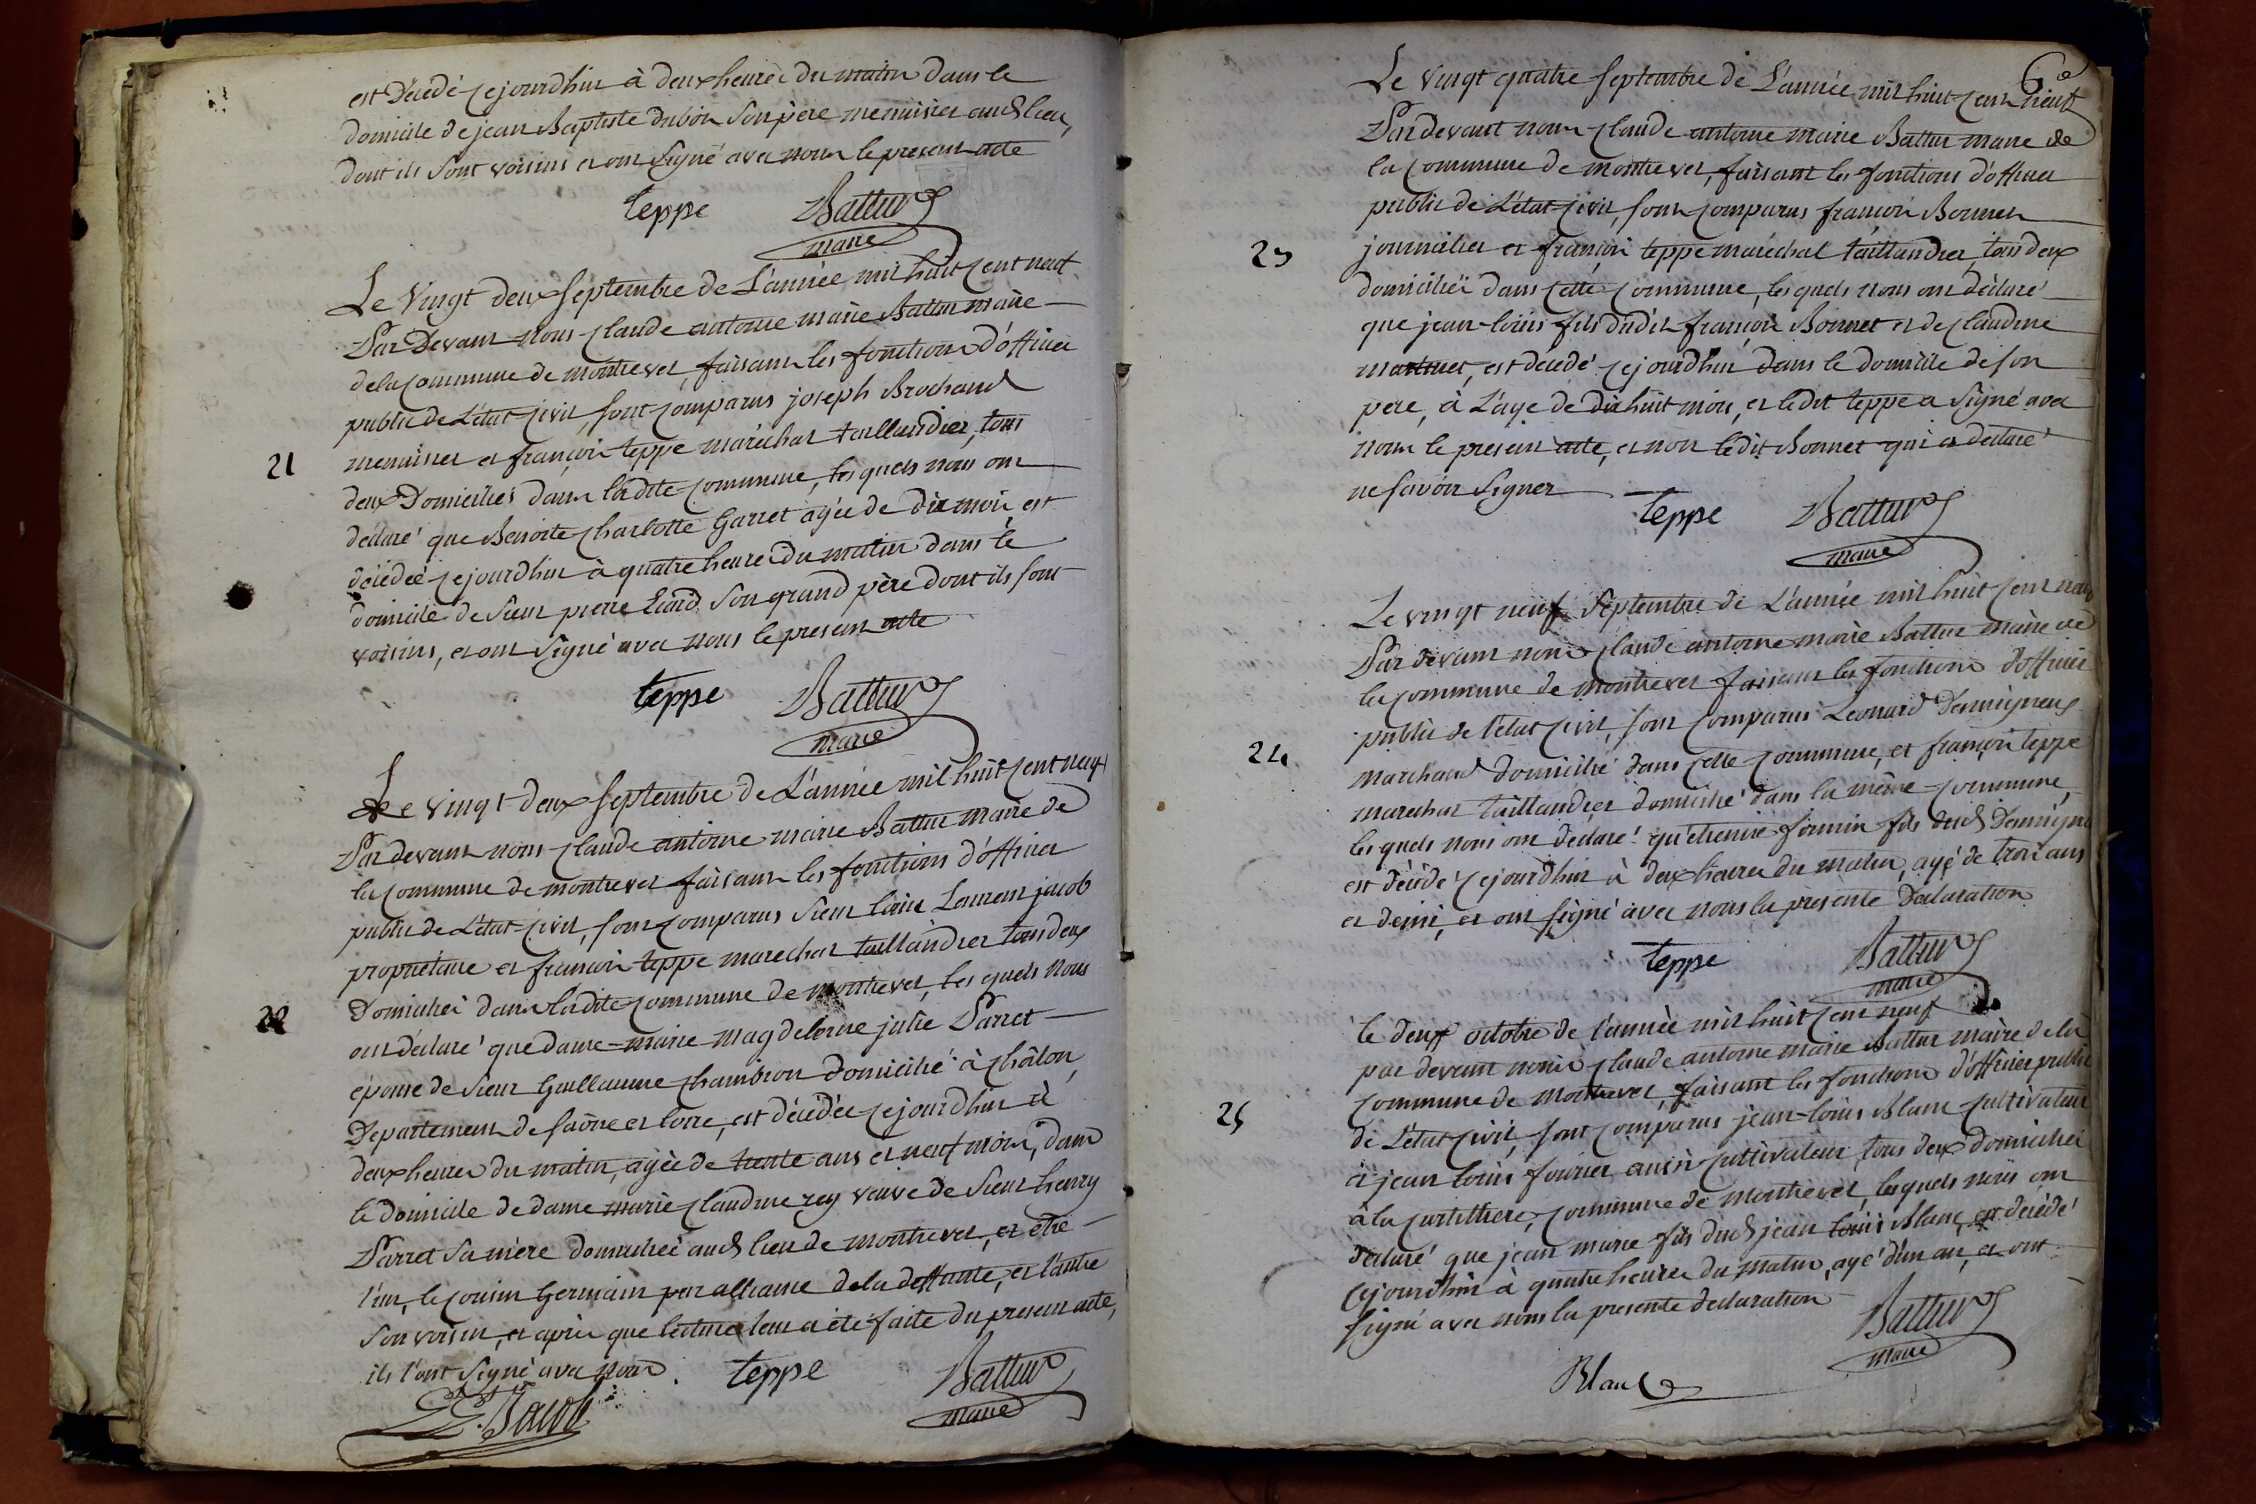 est Décédé cejourdhui à deux heures du matin dans le
domicile de jean Baptiste dubois son père menuisier aud. lieu,
dont ils sont voisins et ont signé avec nous le present acte
teppe Battur
maire
Le Vingt deux septembre de L'année mil huit cent neuf
Par Devant nous claude antoine marie Battur maire
de la commune de montrevel, faisant les fonctions d'officier
public de L'état civil, sont comparus joseph Brochand
menuisier et françois teppe maréchal taillandier, tous
21
deux Domiciliés dans ladite commune, lesquels nous ont
déclaré que Benoite charlotte Garret agée de dix mois, est
décédée cejourdhui à quatre heures du matin dans le
domicile de Sieur pierre son grand père dont ils sont
voisins, et ont signé avec nous le present acte
teppe Battur
maire
Le vingt deux septembre de L'année mil huit cent neuf
Par devant nous claude antoine marie Battur maire de
la commune de montrevel faisant les fonctions d'officier
public de L'état civil, sont comparus Sieur Louis Laurent jacob
propriétaire et françois teppe marechal taillandier tous deux
Domiciliés dans ladite commune de montrevel, lesquels nous
22
ont déclaré que dame marie magdeleine julie Parret
épouse de Sieur Guillaume chambion domicilié à châlon,
Département de saône et loire, est décédée cejourdhui à
deux heures du matin, agée de trente ans et neuf mois, dans
le domicile de dame marie claudine rey veuve de Sieur henry
Parret sa mère domiciliée aud. lieu de montrevel, et être
l'un, le cousin Germain par alliance de la deffunte, et l'autre
son voisin, et après que lecture leur a été faite du present acte,
ils l'ont signé avec nous. teppe Battur
maire
Jacob
6e
Le vingt quatre septembre de L'année mil huit cent neuf
Par devant nous claude antoine marie Battur maire de
la commune de montrevel, faisant les fonctions d'officier
public de L'état civil, sont comparus françois Bonnet
23
journalier et françois teppe maréchal taillandier, tous deux
domiciliés dans cette commune, lesquels nous ont déclaré
que jean-louis fils dudit françois Bonnet et de claudine
martinet, est décédé cejourdhui dans le domicile de son
pere, à L'age de dix huit mois, et ledit teppe a signé avec
nous le present acte, et non ledit Bonnet qui a déclaré
ne savoir signer
teppe Battur
maire
Le vingt neuf septembre de L'année mil huit cent neuf
Par devant nous claude antoine marie Battur maire de
la commune de montrevel faisant les fonctions d'officier
public de l'état civil, sont comparus Leonard Damigneux
24
marchand domicilié dans cette commune, et françois teppe
marechal taillandier domicilié dans la même commune,
lesquels nous ont declaré qu'etienne firmin fils dud.
est décédé cejourdhui à deux heures du matin, agé de trois ans
et demi, et ont signé avec nous la presente déclaration
teppe Battur
maire
le deux octobre de l'année mil huit cent neuf
par devant nous claude antoine marie Battur maire de la
commune de montrevel, faisant les fonctions d'officier public
25
de L'état civil, sont comparus jean-louis Blanc cultivateur
et jean louis fournier aussi cultivateur, tous deux domiciliés
à la curtilliere, commune de montrevel, lesquels nous ont
déclaré que jean marie fils dud. jean louis Blanc, est décédé
cejourdhui à quatre heures du matin, agé d'un an, et ont
signé avec nous la presente declaration
Battur
maire
Blanc